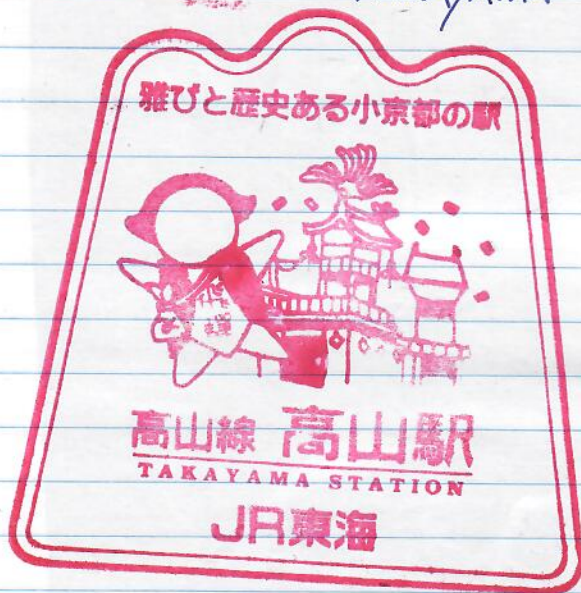 雅びと歴史ある小京都の駅
高山線 高山駅
TAKAYAMA STATION
JR東海